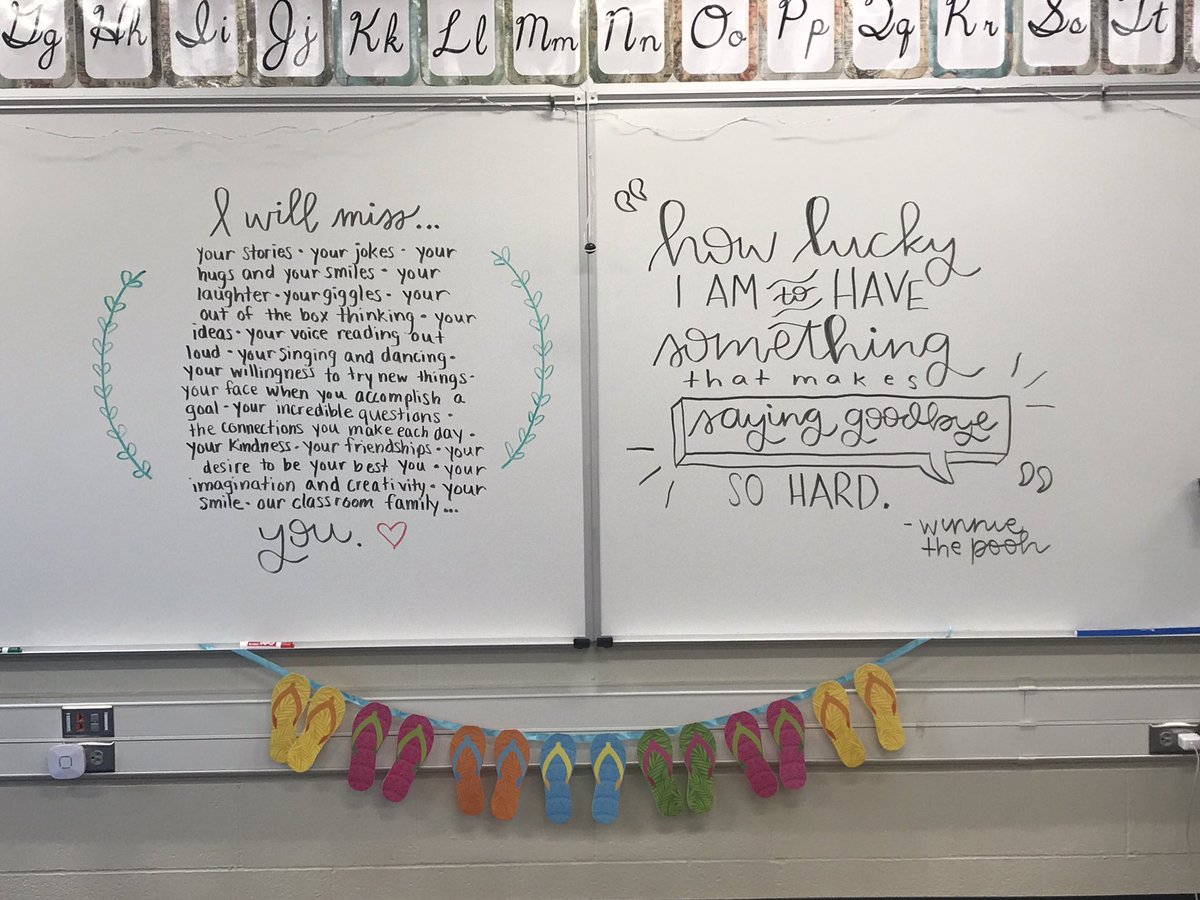 Gg Hh Ii Jj Kk Ll Mm Nn Oo Pp Qq Rr Ss Tt
I will miss...
your stories • your jokes • your
hugs and your smiles • your
laughter • your giggles • your
out of the box thinking • your
ideas • your voice reading out
loud • your singing and dancing •
your willingness to try new things •
your face when you accomplish a
goal • your incredible questions •
the connections you make each day •
your kindness • your friendships • your
desire to be your best you • your
imagination and creativity • your
smile • our classroom family...
you.
"how lucky
I AM to HAVE
something
that makes
saying goodbye
SO HARD."
- winnie
the pooh